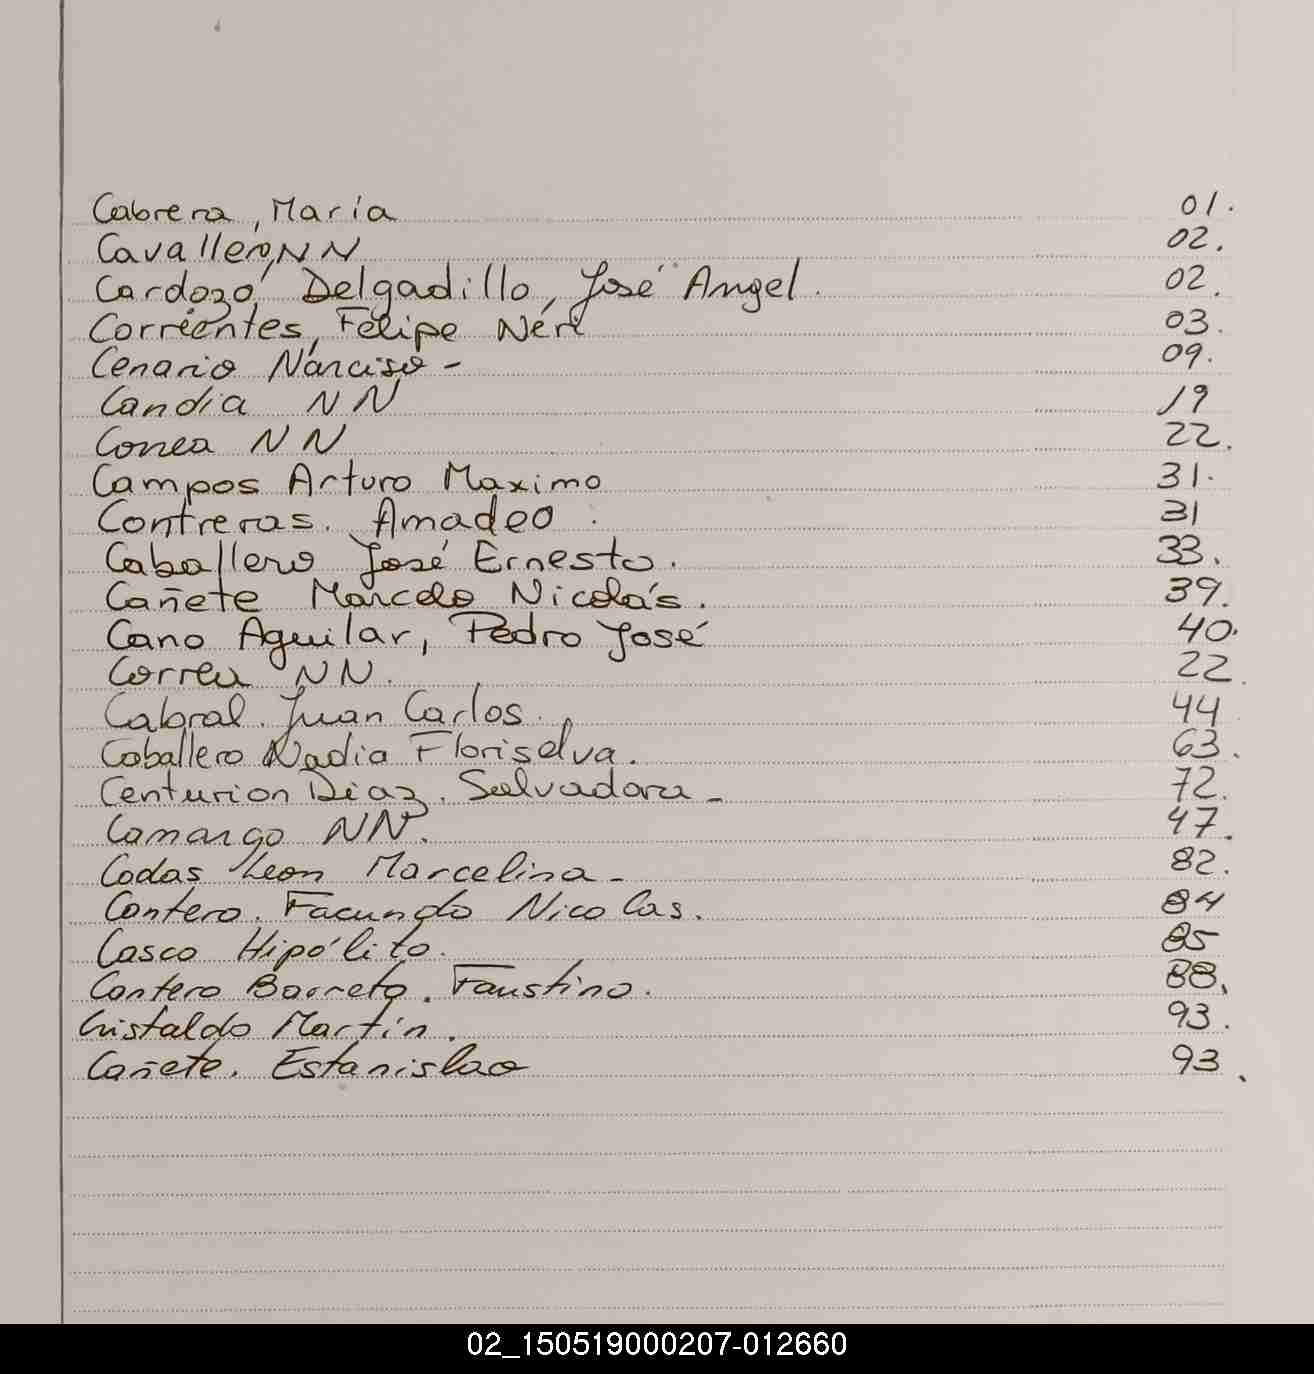 Cabrera, María 01.
Cavallero, NN 02.
Cardozo Delgadillo, José Angel. 02.
Corrientes, Felipe Neri 03.
Cenario Narciso - 09.
Candia NN 19
Correa NN 22.
Campos Arturo Maximo 31.
Contreras. Amadeo. 31
Caballero José Ernesto. 33.
Cañete Marcelo Nicolás. 39.
Cano Aguilar, Pedro José 40.
Correa NN. 22.
Cabral. Juan Carlos. 44
Caballero Nadia Floriselva. 63.
Centurion Diaz. Salvadora - 72.
Camargo NN. 47.
Codas Leon Marcelina - 82.
Cantero. Facundo Nicolas. 84
Casco Hipólito. 85
Cantero Barreto. Faustino. 88.
Cristaldo Martín. 93.
Cañete. Estanislao 93.
02_150519000207-012660